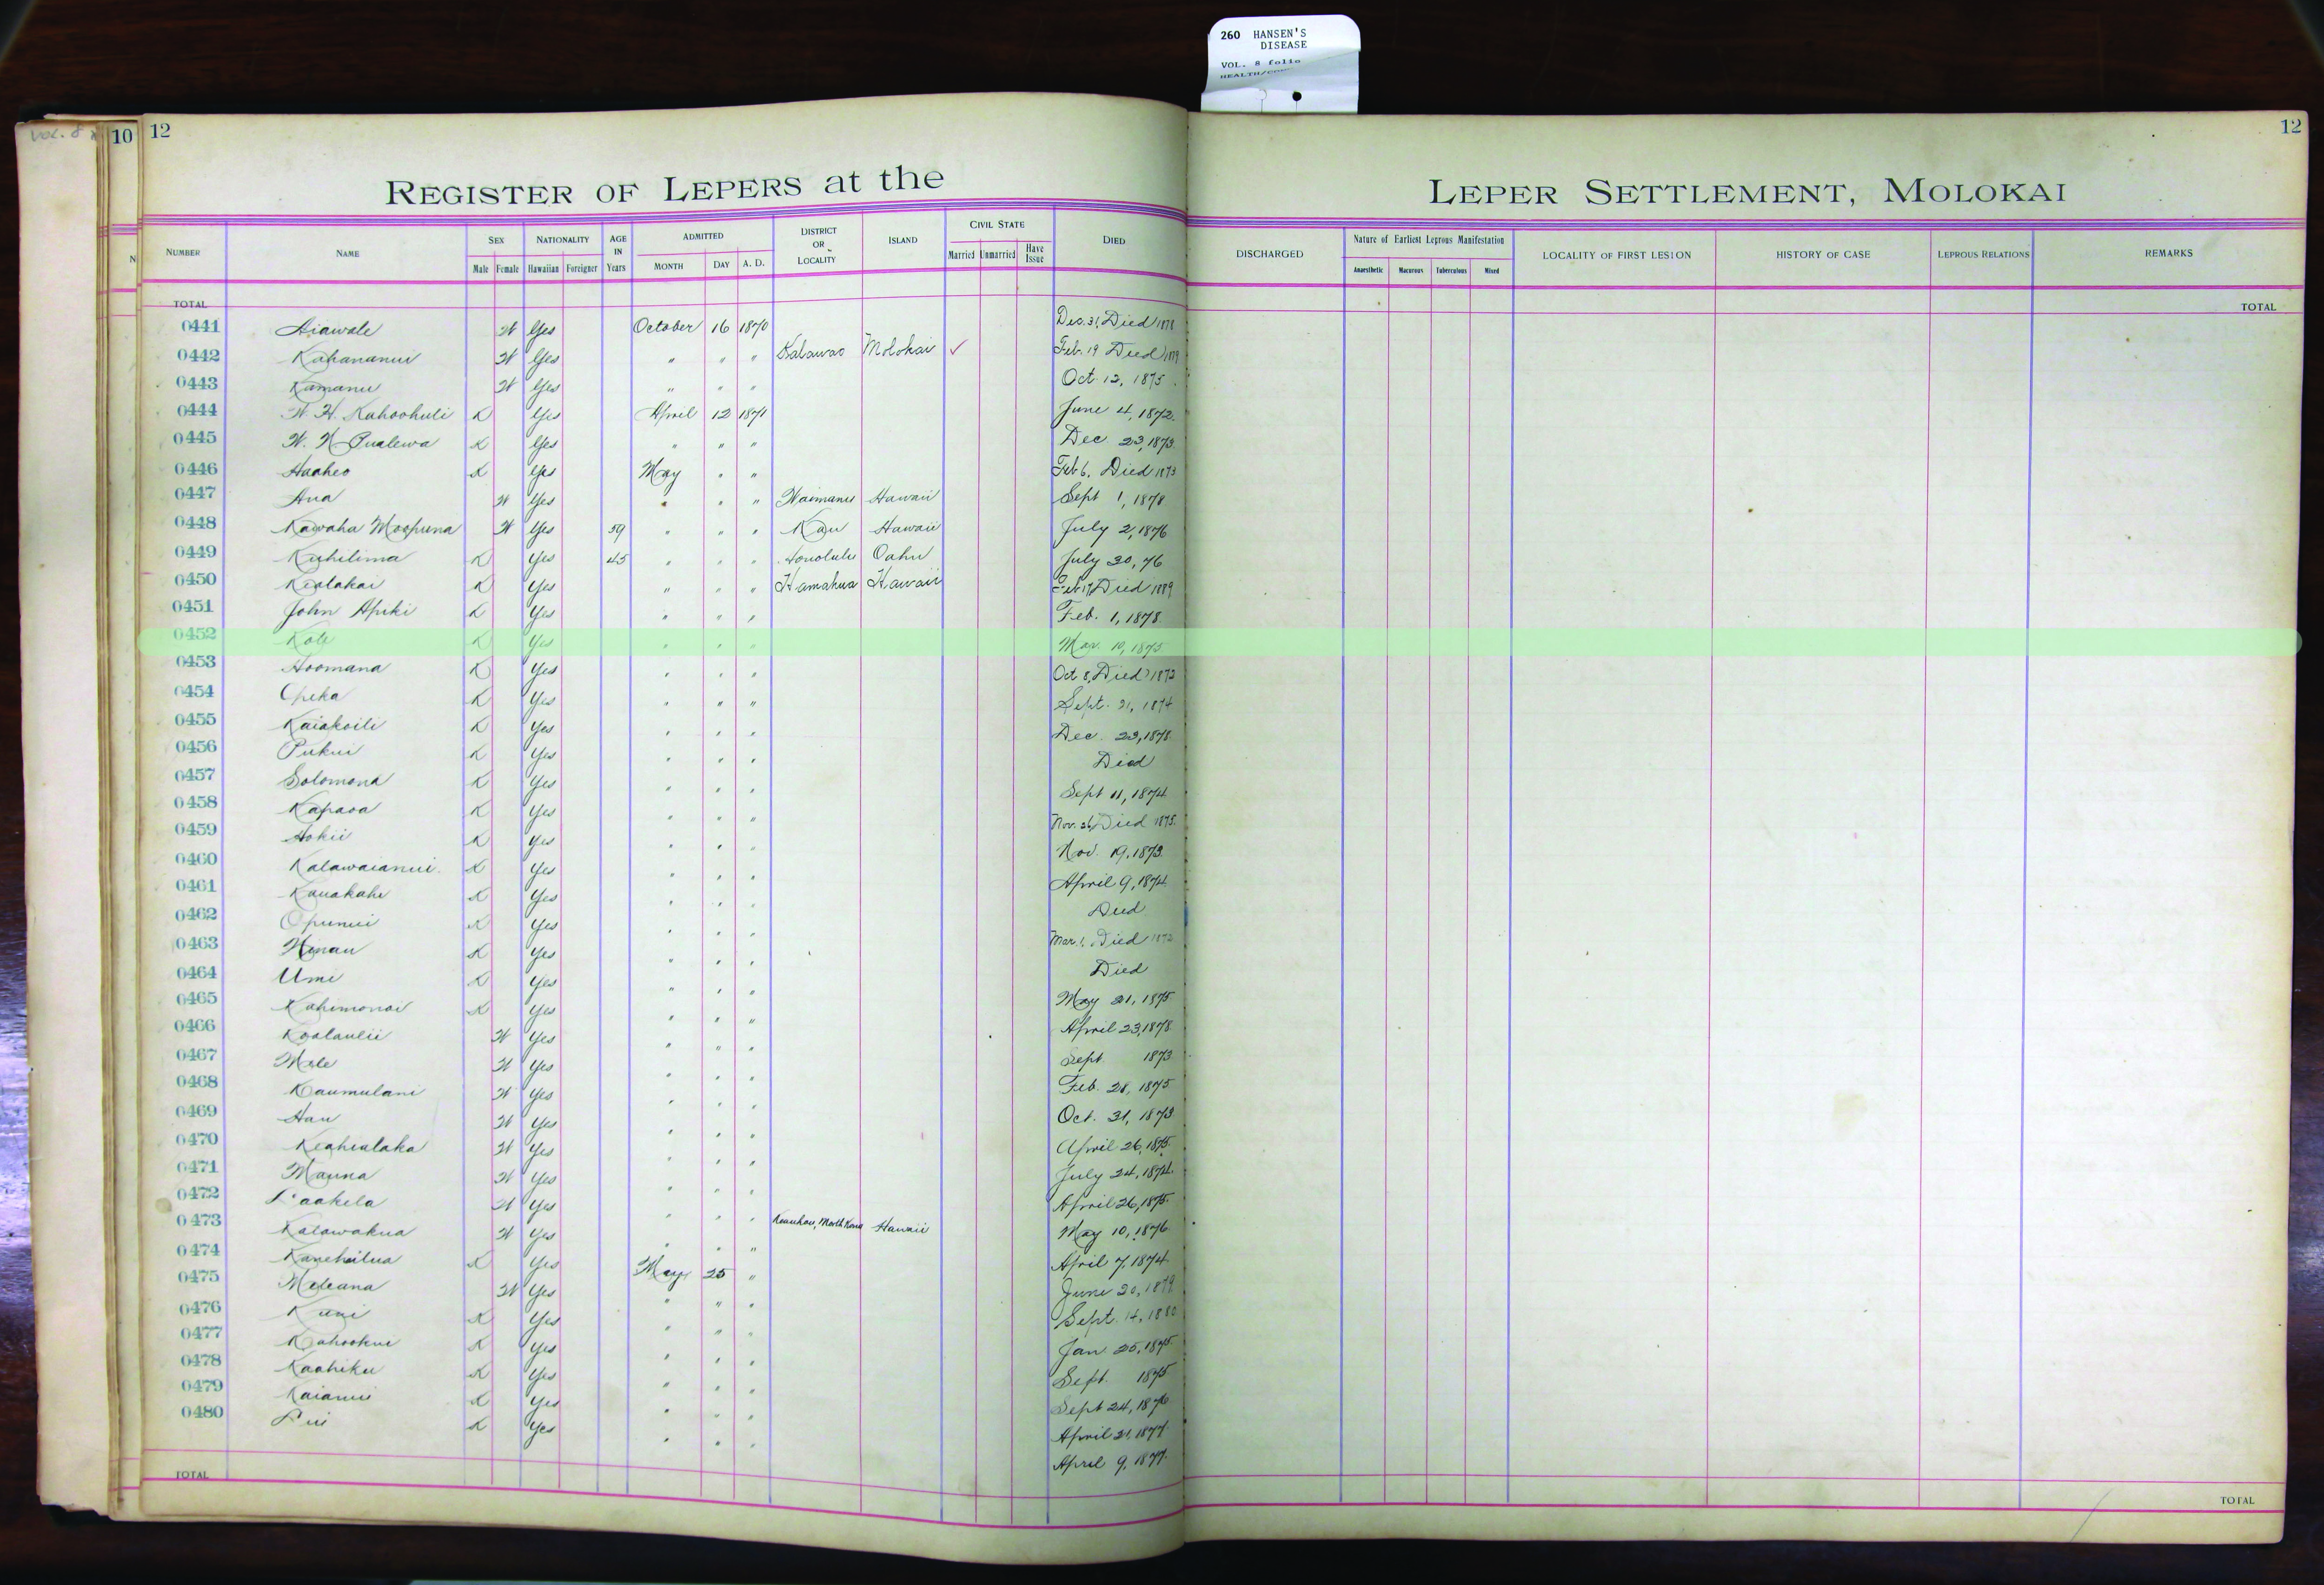 260 HANSEN'S
DISEASE
VOL. 8 folio
10 12
12
REGISTER OF LEPERS at the LEPER SETTLEMENT, MOLOKAI
NUMBER NAME SEX Male Female NATIONALITY Hawaiian Foreigner AGE IN Years ADMITTED MONTH DAY A. D. DISTRICT OR LOCALITY ISLAND CIVIL STATE Married Unmarried Have Issue DIED DISCHARGED Nature of Earliest Leprous Manifestation Anaesthetic Macurous Tuberculous Mixed LOCALITY OF FIRST LESION HISTORY OF CASE LEPROUS RELATIONS REMARKS
TOTAL TOTAL
0441 Aiawale W Yes October 16 1870 Dec. 31, Died 1878
0442 Kahananui W Yes " " " Kalawao Molokai ✓ Feb. 19 Died
0443 Kamanu W Yes " " " Oct. 12, 1875
0444 W. H. Kahoohuli K Yes April 12 1871 June 4, 1872
0445 W. N. Pualewa K Yes " " " Dec. 23, 1873
0446 Haaheo K Yes May " " Feb 6, Died 1873
0447 Ana W Yes " " " Waimanu Hawaii Sept 1, 1878
0448 Kawaha Moopuna W Yes 59 " " " Kau Hawaii July 2, 1876
0449 Kuhilima K Yes 45 " " " Honolulu Oahu July 30, 76
0450 Kealakai K Yes " " " Hamakua Hawaii Feb 17, Died 1889
0451 John Apiki K Yes " " " Feb. 1, 1878
0452 Kole K Yes " " " Mar. 10, 1875
0453 Hoomana K Yes " " " Oct 8, Died 1873
0454 Opeka K Yes " " " Sept. 21, 1874
0455 Kaiakoili K Yes " " " Dec. 23, 1878
0456 Pukui K Yes " " " Died
0457 Solomona K Yes " " " Sept 11, 1874
0458 Kapaoa K Yes " " " Nov. 26, Died 1875
0459 Hokii K Yes " " " Nov. 19, 1873
0460 Kalawaianui K Yes " " " April 9, 1874
0461 Kauakahi K Yes " " " Died
0462 Opunui K Yes " " " Mar. 1, Died 1873
0463 Hinau K Yes " " " Died
0464 Umi K Yes " " " May 21, 1875
0465 Kahimonoi K Yes " " " April 23, 1878
0466 Koolaulii W Yes " " " Sept 1873
0467 Mele W Yes " " " Feb. 28, 1875
0468 Kaumulani W Yes " " " Oct. 31, 1873
0469 Hau W Yes " " " April 26, 1875
0470 Keahialaka W Yes " " " July 24, 1874
0471 Mauna W Yes " " " April 26, 1875
0472 Laakela W Yes " " " May 10, 1876
0473 Kalawakua W Yes " " " Keauhou, North Kona Hawaii April 7, 1874
0474 Kanehailua K Yes May 25 " June 20, 1879
0475 Meleana W Yes " " " Sept. 14, 1880
0476 Kuni K Yes " " " Jan 25, 1875
0477 Kahookui K Yes " " " Sept. 1875
0478 Kaahiku K Yes " " " Sept 24, 1876
0479 Kaianui K Yes " " " April 21, 1877
0480 Lui K Yes " " " April 9, 1877
TOTAL TOTAL